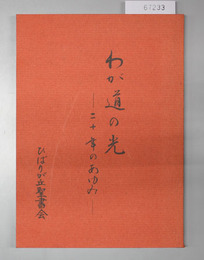 わが道の光
―二十年のあゆみ―
ひばりが丘聖書の会
61233